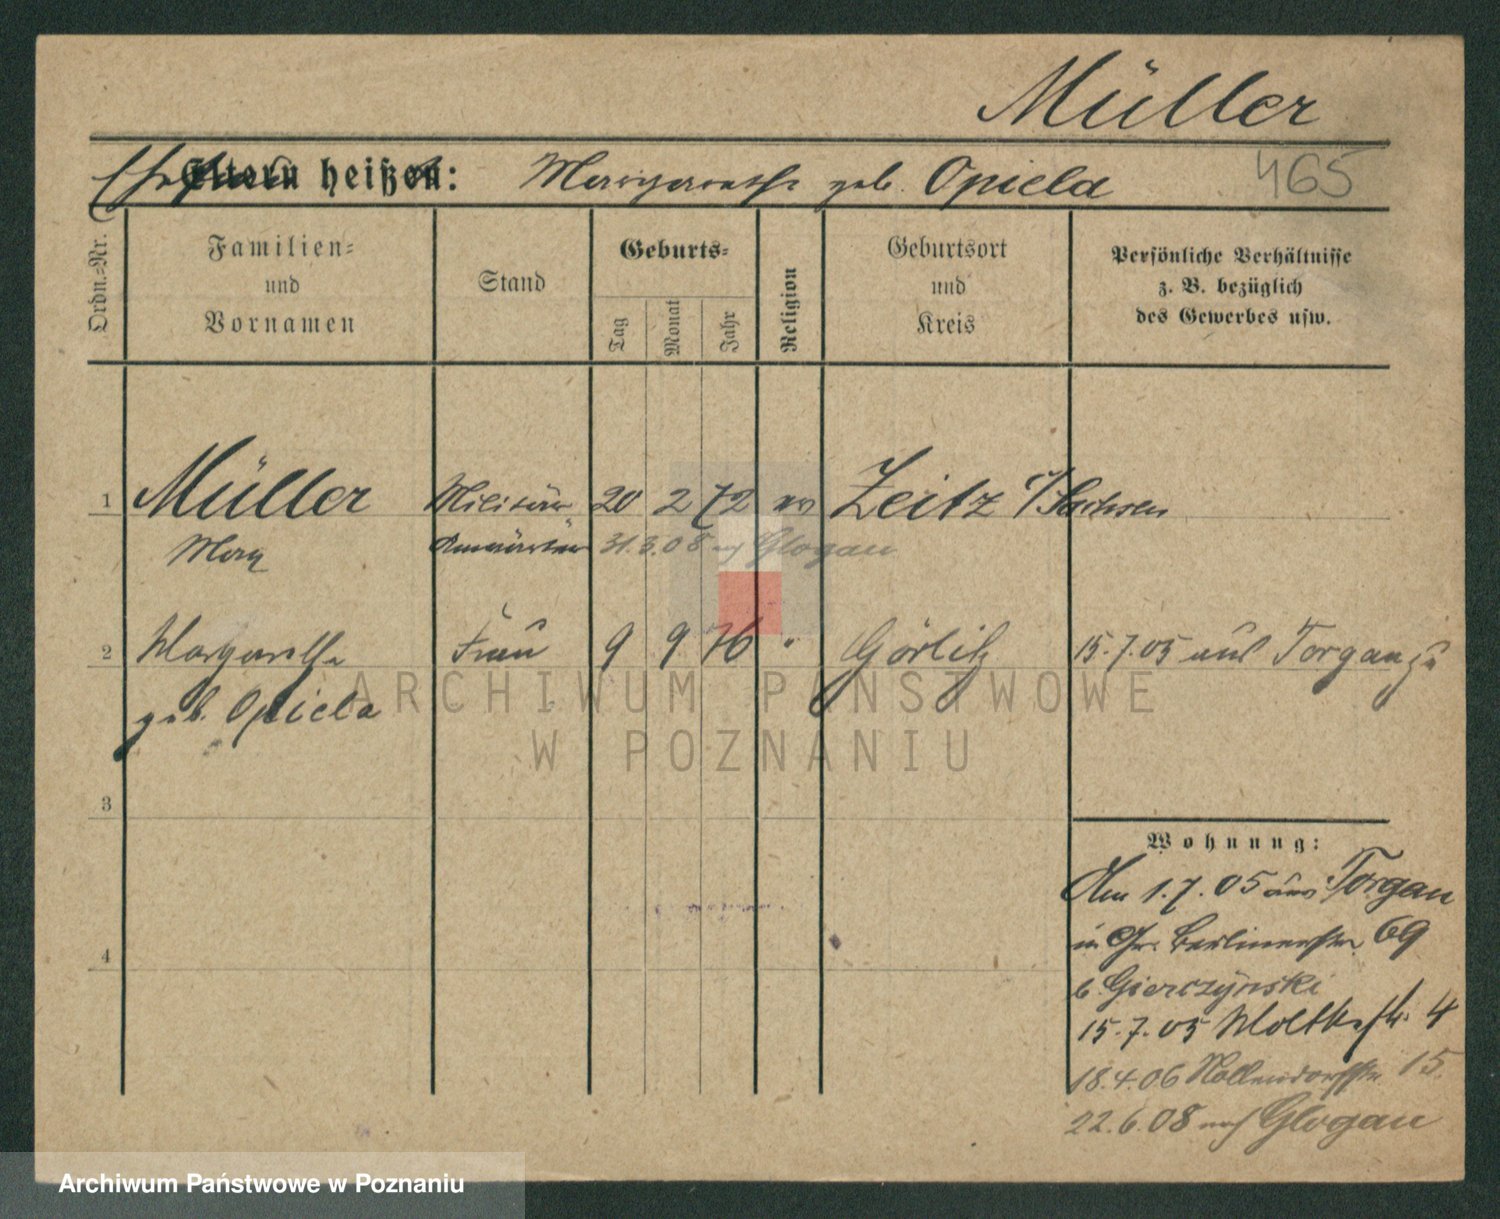 Müller
Eltern heißen: Margarethe geb. Opiela 465
Ordn.-Nr.
Familien-
und
Vornamen
Stand
Geburts-
Tag
Monat
Jahr
Religion
Geburtsort
und
Kreis
Persönliche Verhältnisse
z. B. bezüglich
des Gewerbes usw.
1 Müller Militär 20 2 72 ev Zeitz /Sachsen
Max Anwärter 31.3.08 n/ Glogau
2 Margarethe Frau 9 9 76 " Görlitz 15.7.05 aus Torgau zu
geb. Opiela
ARCHIWUM PAŃSTWOWE
W POZNANIU
3
Wohnung:
Am 1.7.05 aus Torgau
in Gr. Berlinerstr. 69
4
b. Gierczynski
15.7.05 Moltkestr. 4
18.4.06 Nollendorfstr. 15.
22.6.08 nach Glogau
Archiwum Państwowe w Poznaniu